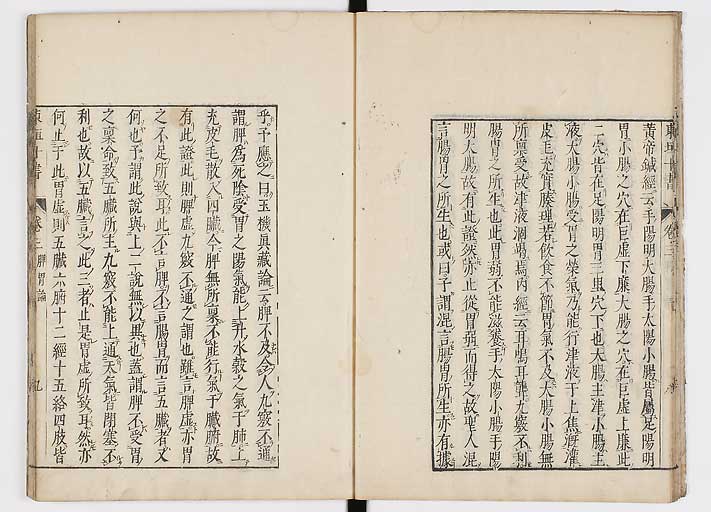 黄帝鍼經云手陽明大腸手太陽小腸皆屬足陽明
胃小腸之穴在巨虚下廉大腸之穴在巨虚上廉此
二穴皆在足陽明胃三里穴下也大腸主津小腸主
液大腸小腸受胃之榮氣乃能行津液于上焦漑灌
皮毛充實腠理若飲食不節胃氣不及大腸小腸無
所禀受故津液涸竭焉内經云耳鳴耳聾九竅不利
腸胃之所生也此胃弱不能滋養手太陽小腸手陽
明大腸故有此證然亦止從胃弱而得之故聖人混
言腸胃之所生也或曰子謂混言腸胃所生亦有據
乎予應之曰玉機眞藏論云脾不及令人九竅不通
謂脾為死陰受胃之陽氣能上升水穀之氣于肺上
充皮毛散入四臟今脾無所禀不能行氣于臟腑故
有此證此則脾虚九竅不通之謂也雖言脾虚亦胃
之不足所致耳此不言脾不言腸胃而言五臟者又
何也予謂此說與上二說無以異也蓋謂脾不受胃
之禀命致五臟所主九竅不能上通天氣皆閉塞不
利也故以五臟言之此三者止是胃虚所致耳然亦
何止于此胃虚則五臟六腑十二經十五絡四肢皆
東垣十書 卷三 脾胃論 九